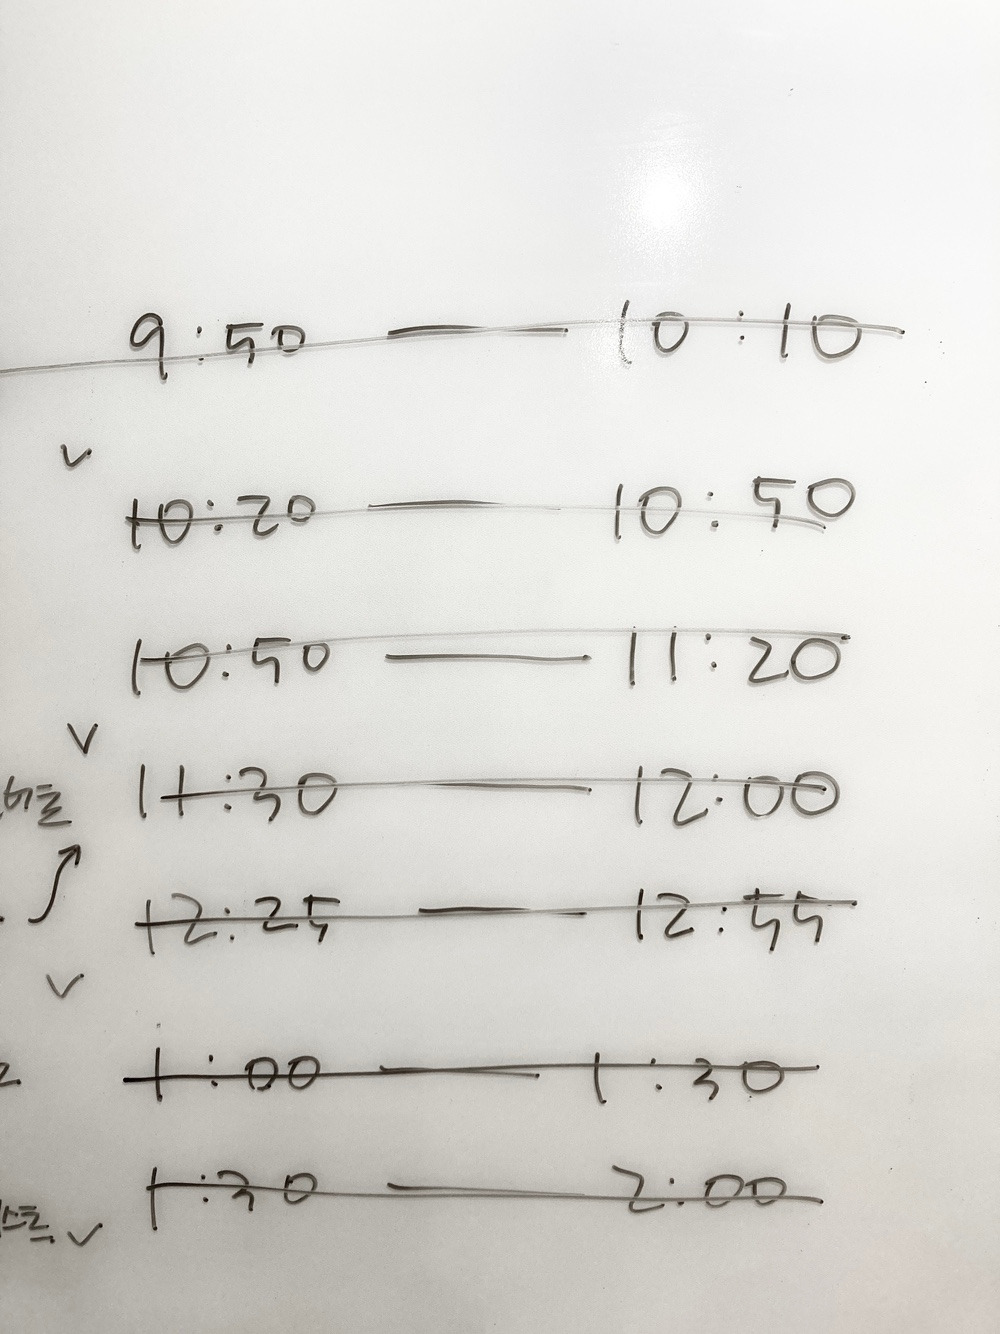 9:50 — 10:10
10:20 — 10:50
10:50 — 11:20
11:30 — 12:00
12:25 — 12:55
1:00 — 1:30
1:30 — 2:00